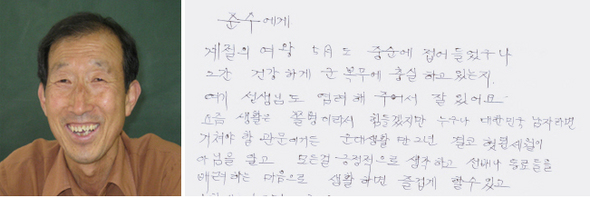 준수에게
계절의 여왕 5月도 중순에 접어 들었구나
그간 건강하게 군 복무에 충실하고 있는지.
여기 선생님도 염려해 주어서 잘 있어요
요즘 생활은 졸병이라서 힘들겠지만 누구나 대한민국 남자라면
거쳐야 할 관문이거든 군대생활 만 2년 결코 헛된세월이
아님을 알고 모든걸 긍정적으로 생각하고 선배나 동료들을
배려하는 마음으로 생활하면 즐겁게 할수있고